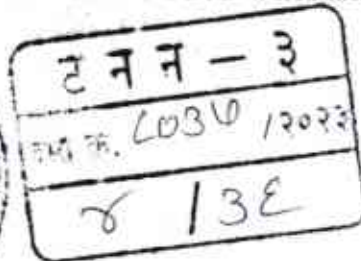 ट न न - ३
क्र. ८०३७ /२०२२
४ / ३६